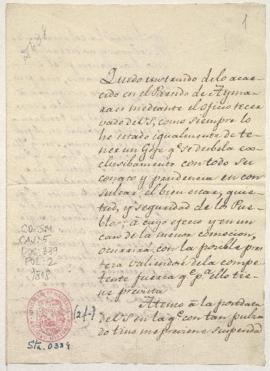 1
Quedo enterado de lo acae
cido en el Partido de Ayma
raes mediante el oficio reser
vado de V.S. como siempre lo
he estado igualmente de te
ner un Gefe qe. se desbela ex
clusibamente con todo su
conato y prudencia en con
sultar el bien estar, quie
tud, y seguridad de los Pue
blos; a cuyo efecto y en un
caso de la menor comocion,
ocurrirá con la posible pron
teza valiendose de la compe
tente fuerza qe. pa. ello tie
ne prevista.
Atento á la postdata
de V.S. en la qe. con tan pulsado
tino me previene suspenda
CDIP
1818
(2f.)
Sta. 0339